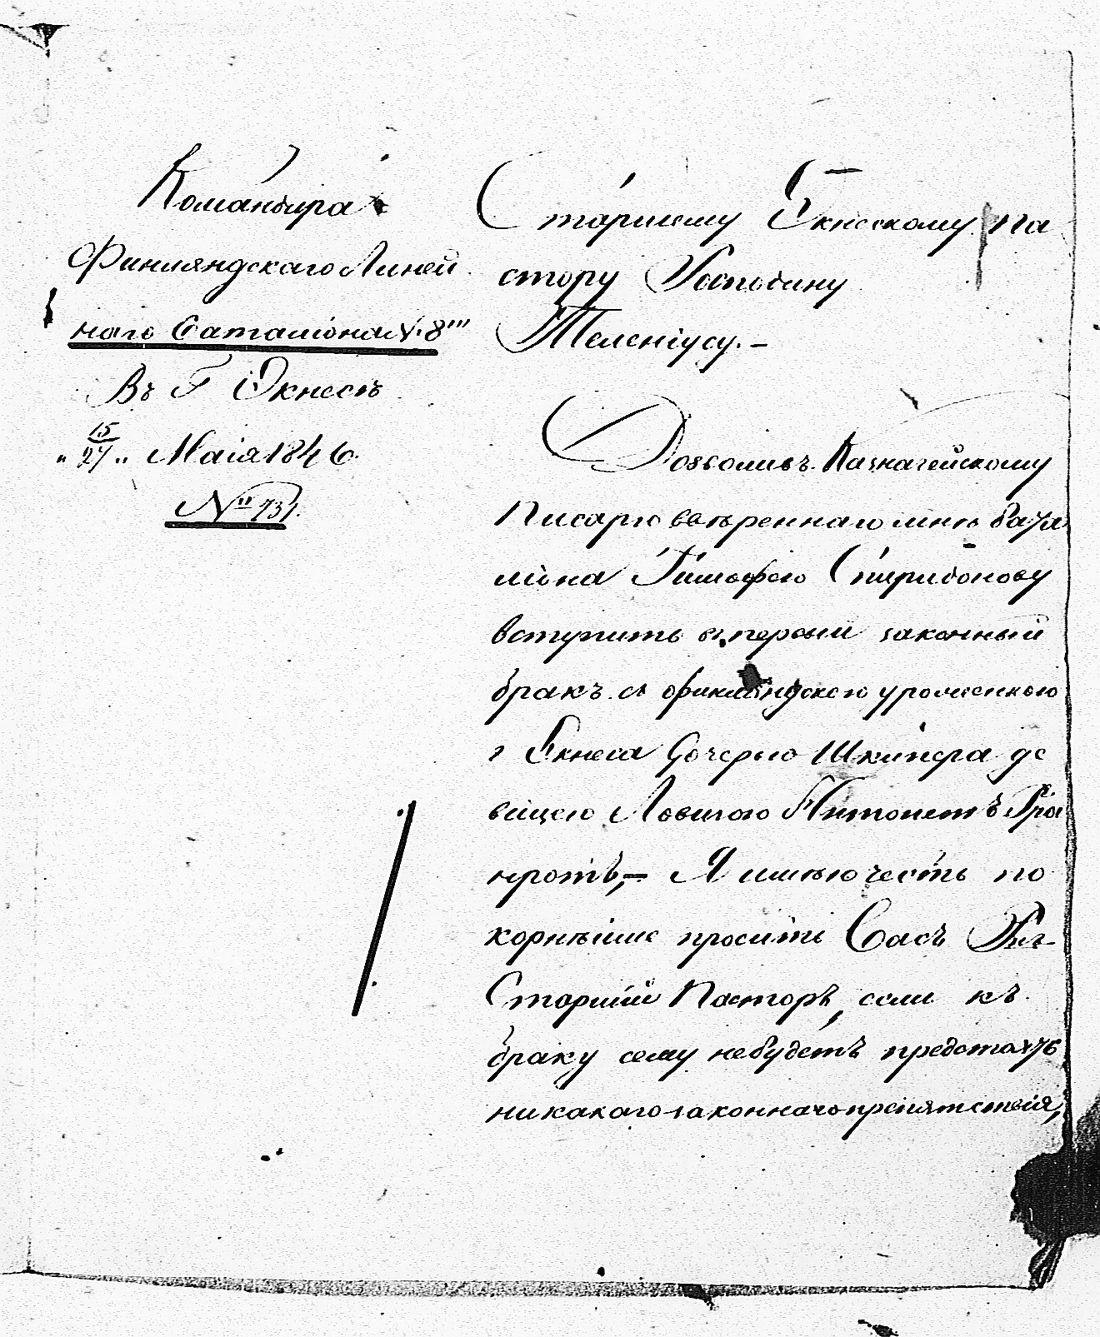 Командира
Финляндскаго Линей
наго баталіона № 8го
Въ Г Экнесѣ
" 15/27 " Маія 1846
№ 731.
Старшему Екнескому па
стору Господину
Телениусу. —
Дозволивъ Казначейскому
Писарю ввѣреннаго мнѣ бата
ліона Тимофею Спиридонову
вступить въ первый законный
бракъ съ финляндскою уроженкою
г Екнеса дочерью Шкипера де
вицею Ловизою Антонетъ
нротъ, — Я имѣю честь по
корнѣише просить Васъ
Старшій Пасторъ, если къ
браку сему небудетъ предстоять
никакаго законнаго препятствія,